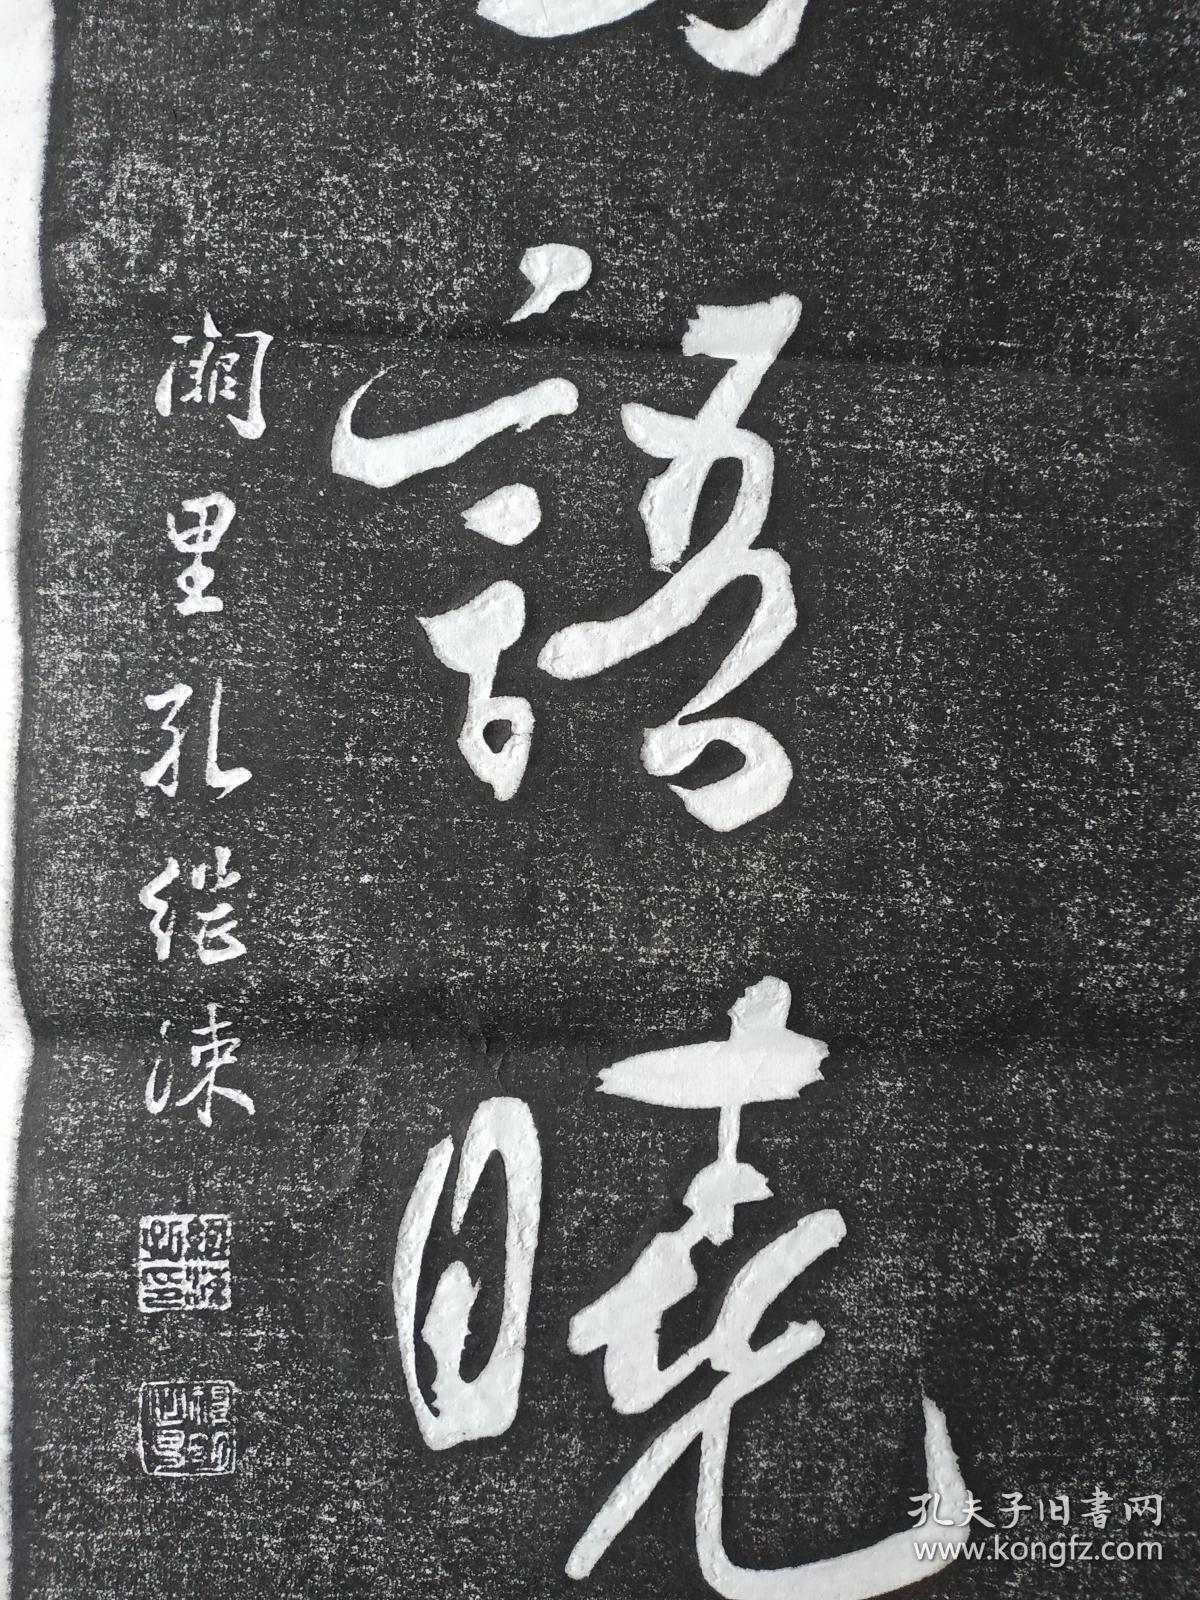 語曉
阙里孔继涑
孔夫子旧書网
www.kongfz.com